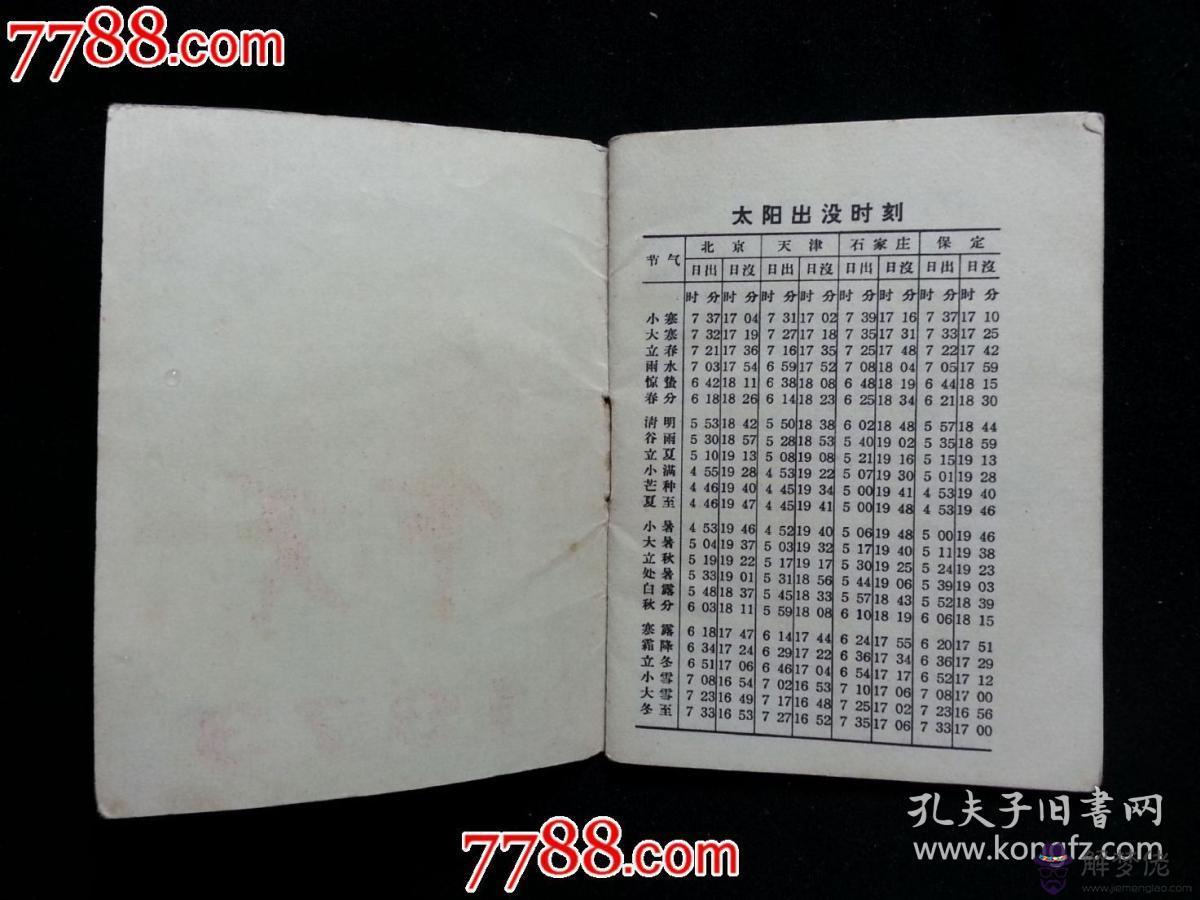 7788.com
7788.com
太阳出没时刻
节气 北京 天津 石家庄 保定
日出 日沒 日出 日沒 日出 日沒 日出 日沒
时 分 时 分 时 分 时 分 时 分 时 分 时 分 时 分
小寒 7 37 17 04 7 31 17 02 7 39 17 16 7 37 17 10
大寒 7 32 17 19 7 27 17 18 7 35 17 31 7 33 17 25
立春 7 21 17 36 7 16 17 35 7 25 17 48 7 22 17 42
雨水 7 03 17 54 6 59 17 52 7 08 18 04 7 05 17 59
惊蛰 6 42 18 11 6 38 18 08 6 48 18 19 6 44 18 15
春分 6 18 18 26 6 14 18 23 6 25 18 34 6 21 18 30
清明 5 53 18 42 5 50 18 38 6 02 18 48 5 57 18 44
谷雨 5 30 18 57 5 28 18 53 5 40 19 02 5 35 18 59
立夏 5 10 19 13 5 08 19 08 5 21 19 16 5 15 19 13
小满 4 55 19 28 4 53 19 22 5 07 19 30 5 01 19 28
芒种 4 46 19 40 4 45 19 34 5 00 19 41 4 53 19 40
夏至 4 46 19 47 4 45 19 41 5 00 19 48 4 53 19 46
小暑 4 53 19 46 4 52 19 40 5 06 19 48 5 00 19 46
大暑 5 04 19 37 5 03 19 32 5 17 19 40 5 11 19 38
立秋 5 19 19 22 5 17 19 17 5 30 19 25 5 24 19 23
处暑 5 33 19 01 5 31 18 56 5 44 19 06 5 39 19 03
白露 5 48 18 37 5 45 18 33 5 57 18 43 5 52 18 39
秋分 6 03 18 11 5 59 18 08 6 10 18 19 6 06 18 15
寒露 6 18 17 47 6 14 17 44 6 24 17 55 6 20 17 51
霜降 6 34 17 24 6 29 17 22 6 36 17 34 6 36 17 29
立冬 6 51 17 06 6 46 17 04 6 54 17 17 6 52 17 12
小雪 7 08 16 54 7 02 16 53 7 10 17 06 7 08 17 00
大雪 7 23 16 49 7 17 16 48 7 25 17 02 7 23 16 56
冬至 7 33 16 53 7 27 16 52 7 35 17 06 7 33 17 00
孔夫子旧書网
www.kongfz.com
解梦佬
www.jiemenglao.com
7788.com